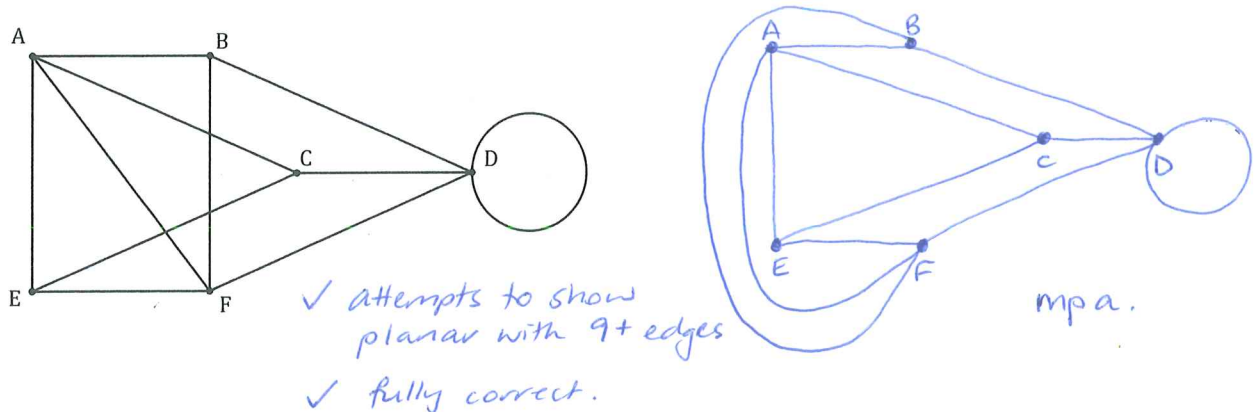 A
B
C
D
E
F
A
B
C
D
E
F
✓ attempts to show
planar with 9+ edges
✓ fully correct.
mpa.